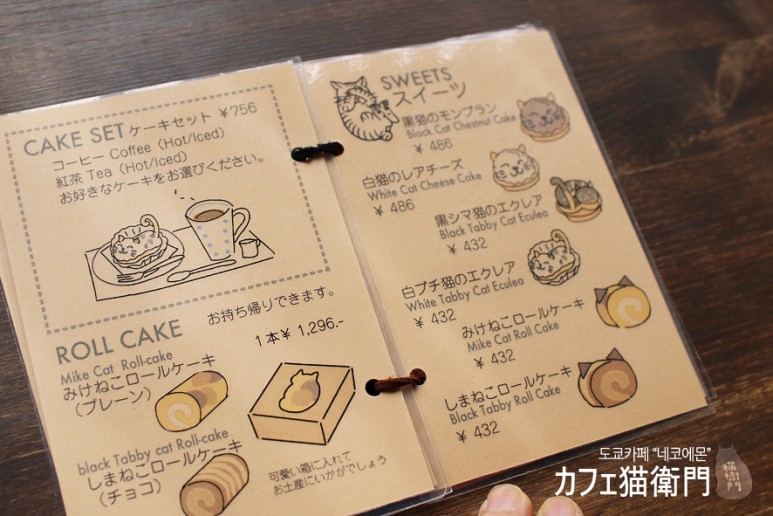 CAKE SET ケーキセット ¥756
コーヒー Coffee (Hot/Iced)
紅茶 Tea (Hot/Iced)
お好きなケーキをお選びください。
お持ち帰りできます。
ROLL CAKE
1本¥ 1,296.-
Mike Cat Roll-cake
みけねこロールケーキ
（プレーン）
black Tabby cat Roll-cake
しまねこロールケーキ
（チョコ）
可愛い箱に入れて
お土産にいかがでしょう
SWEETS
スイーツ
黒猫のモンブラン
Black Cat Chestnut Cake
¥ 486
白猫のレアチーズ
White Cat Cheese Cake
¥ 486
黒シマ猫のエクレア
Black Tabby Cat Eculea
¥ 432
白ブチ猫のエクレア
White Tabby Cat Eculea
¥ 432
みけねこロールケーキ
Mike Cat Roll Cake
¥ 432
しまねこロールケーキ
Black Tabby Roll Cake
¥ 432
도쿄카페 “네코에몬”
カフェ猫衛門